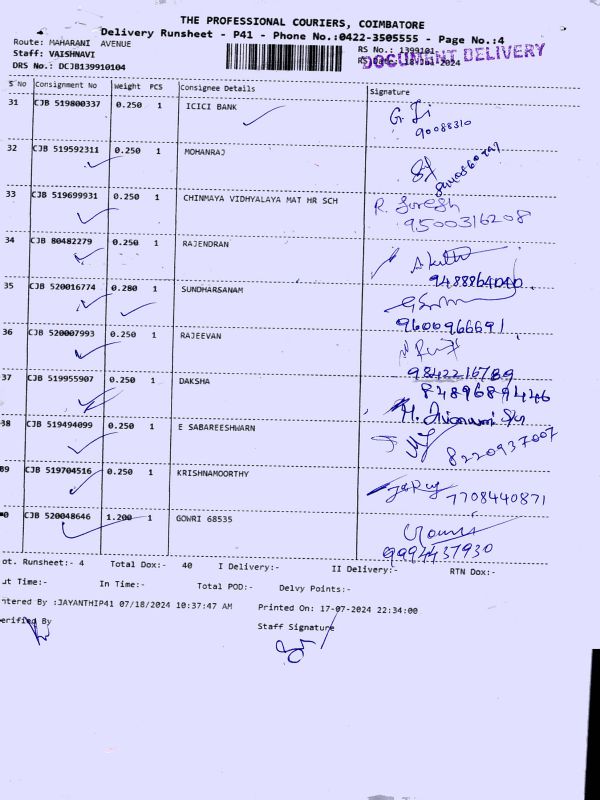 THE PROFESSIONAL COURIERS, COIMBATORE
Delivery Runsheet - P41 - Phone No.:0422-3505555 - Page No.:4
Route: MAHARANI AVENUE
RS No.: 1399101
Staff: VAISHNAVI
DOCUMENT DELIVERY
DRS No.: DCJB139910104
S No Consignment No Weight PCS Consignee Details Signature
31 CJB 519800337 0.250 1 ICICI BANK
90088310
32 CJB 519592311 0.250 1 MOHANRAJ
33 CJB 519699931 0.250 1 CHINMAYA VIDHYALAYA MAT HR SCH R. Suresh
9500316208
34 CJB 80482279 0.250 1 RAJENDRAN
9488864040
35 CJB 520016774 0.280 1 SUNDHARSANAM
9600966691
36 CJB 520007993 0.250 1 RAJEEVAN
9842216789
37 CJB 519955907 0.250 1 DAKSHA 8489689446
38 CJB 519494099 0.250 1 E SABAREESHWARN
8220937007
39 CJB 519704516 0.250 1 KRISHNAMOORTHY
7708440871
40 CJB 520048646 1.200 1 GOWRI 68535
9994437930
ot. Runsheet:- 4 Total Dox:- 40 I Delivery:- II Delivery:- RTN Dox:-
ut Time:- In Time:- Total POD:- Delvy Points:-
ntered By :JAYANTHIP41 07/18/2024 10:37:47 AM Printed On: 17-07-2024 22:34:00
erified By Staff Signature